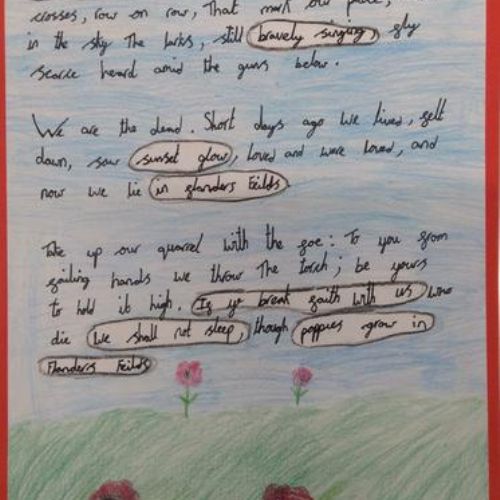 crosses, row on row, That mark our place,
in the sky The larks, still bravely singing, fly
scarce heard amid the guns below.
We are the dead. Short days ago We lived, felt
dawn, saw sunset glow, Loved and were loved, and
now we lie in flanders Feilds
Take up our quarrel with the foe: To you from
failing hands we throw The torch; be yours
to hold it high. If ye break faith with us who
die We shall not sleep, though poppies grow in
Flanders Feilds